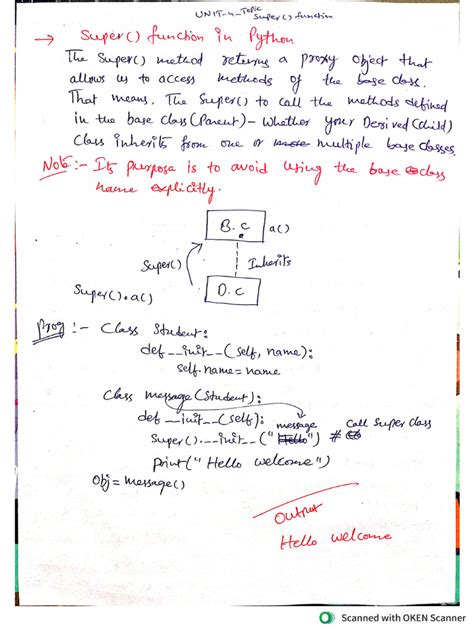 UNIT-4-Topic
Super() function
→ Super() function in Python
The Super() method returns a proxy object that
allows us to access methods of the base class.
That means, The Super() to call the methods defined
in the base class (Parent) - Whether your Derived (child)
Class inherits from one or multiple base classes.
Note:- Its purpose is to avoid using the base class
name explicitly.
B.C a()
Super() Inherits
Super().a() D.C
Prog :- Class Student:
def __init__(self, name):
self.name = name
Class message(Student):
def __init__(self):
message
Super().__init__("Hello") # Call Super class
print("Hello welcome")
Obj = message()
Output
Hello welcome
Scanned with OKEN Scanner